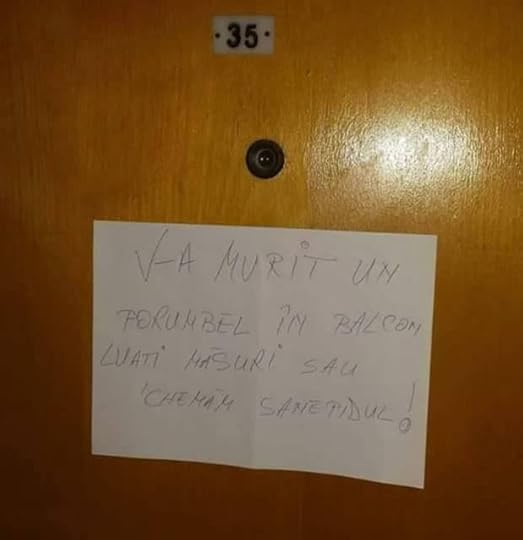 ·35·
V-A MURIT UN
PORUMBEL ÎN BALCON
LUATI MĂSURI SAU
CHEMĂM SANEPIDUL!